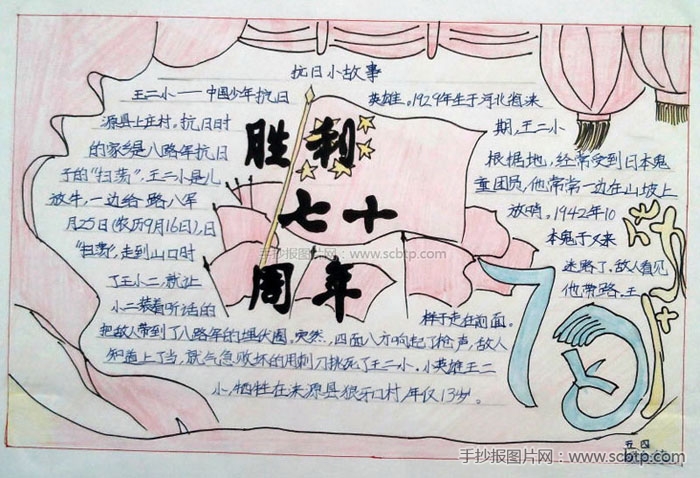 抗日小故事
王二小——中国少年抗日 英雄。1929年生于河北省涞
源县上庄村。抗日时 期,王二小
的家乡是八路军抗日 根据地,经常受到日本鬼
子的“扫荡”,王二小是儿 童团员,他常常一边在山坡上
放牛,一边给 路八军 放哨。1942年10
月25日(农历9月16日),日 本鬼子又来
“扫荡”,走到山口时 迷路了。敌人看见
了王二小,就让 他带路。王
小二装着听话的 样子走在前面。
把敌人带到了八路军的埋伏圈。突然,四面八方响起了枪声,敌人
知道上了当,就气急败坏的用刺刀挑死了王二小。小英雄王二
小牺牲在涞源县狼牙口村,年仅13岁。
胜利
七十
周年
手抄报图片网 www.scbtp.com
70
五 四
手抄报图片网:www.scbtp.com